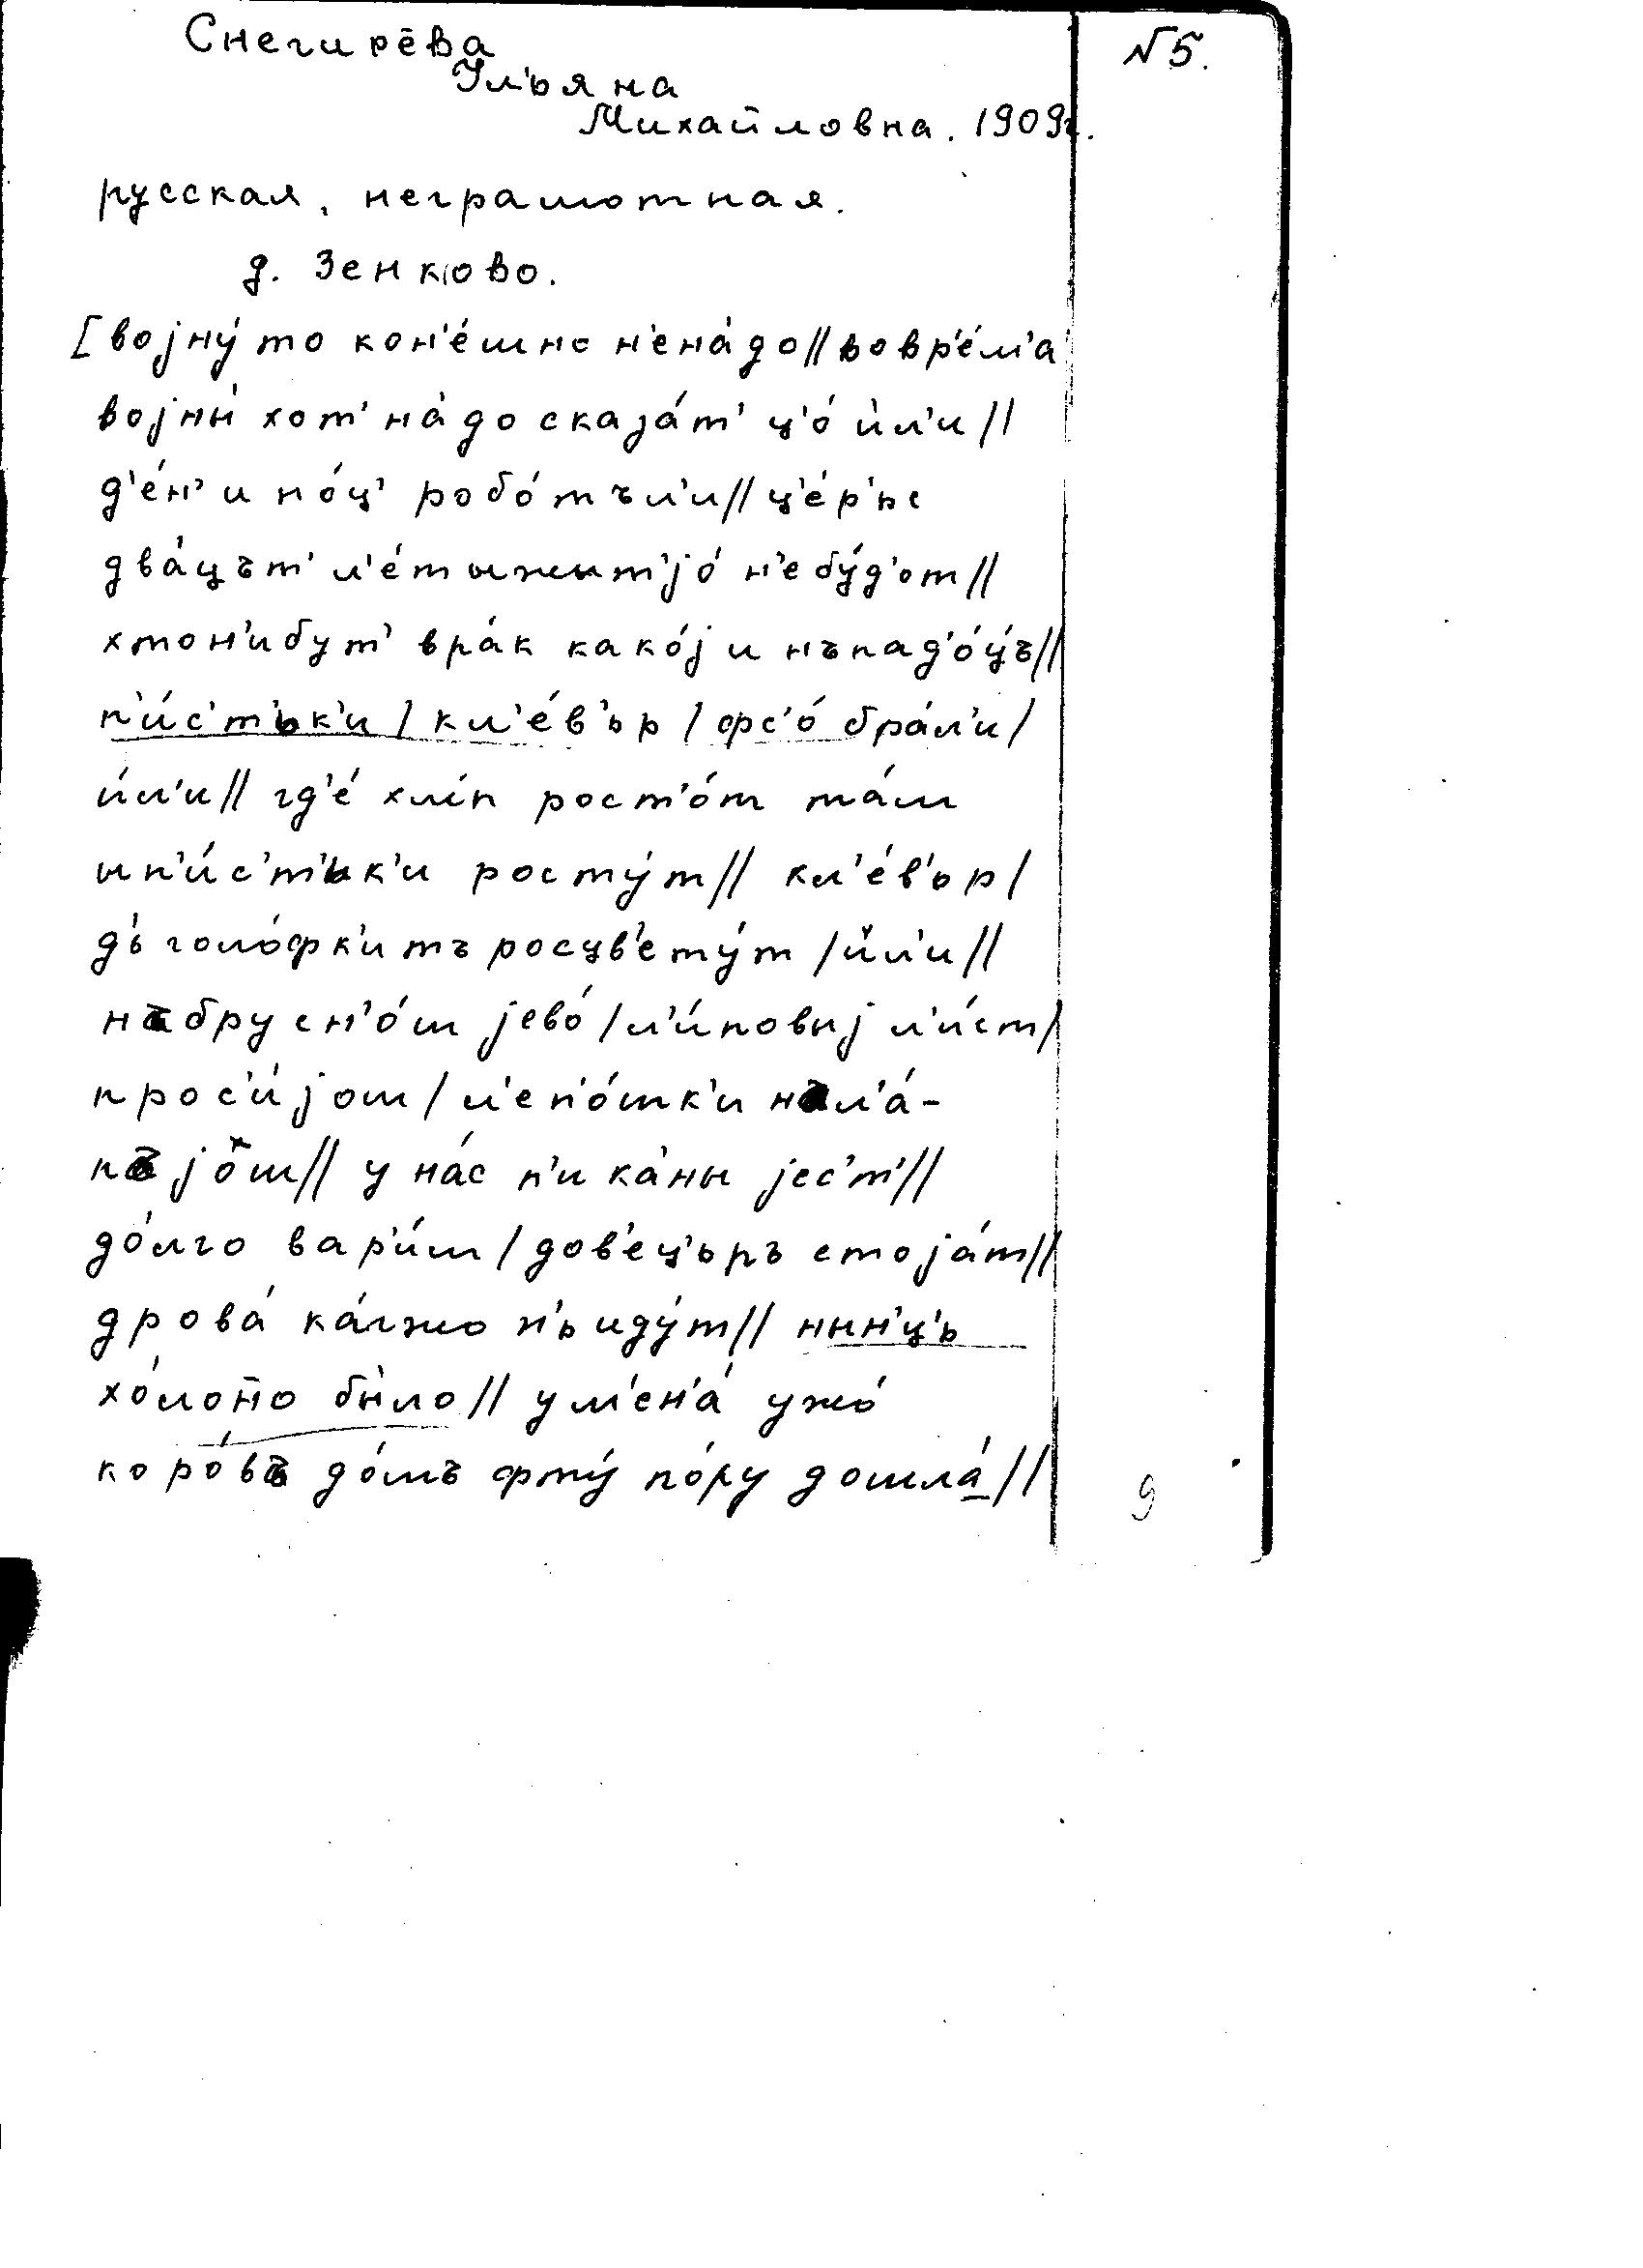 Снегирёва
№5.
Ульяна
Михайловна. 1909г.
русская, неграмотная.
д. Зенково.
[војну́то кон'е́шно н'ена́до//вовр'е́м'а
војны́ хот' на́до сказа́т' ц'о́ и́л'и//
д'е́н' и но́ц' робо́тъл'и//ц'е́р'ьс
два́цът' л'е́тыжыт'јо́ н'ебу́д'от//
хтон'ибут' вра́к како́ј и нъпад'о́ц́ъ//
п'и́с'т'ьк'и/кл'е́в'ьр/фс'о́ бра́л'и/
и́л'и// гд'е́ хл'и́п рост'о́т та́м
ып'и́с'т'ьк'и росту́т// кл'е́в'ьр/
дъ голо́фк'итъ росцв'ету́т/и́л'и//
нъбрусн'о́ш јево́/л'и́повыј л'и́ст/
прос'и́још/л'еп'о́шк'и нъл'а́-
пъјо̆ш// у на́с п'ика́ны јес'т'//
до́лго вар'и́ш/дов'ец'ьръ стоја́т//
дрова́ ка́гжо н'ь иду́т// нын'ц'ь
хо́лоно бы́ло// ум'ен'а́ ужо́
коро́въ до́мъ фту́ по́ру дошла́//
9